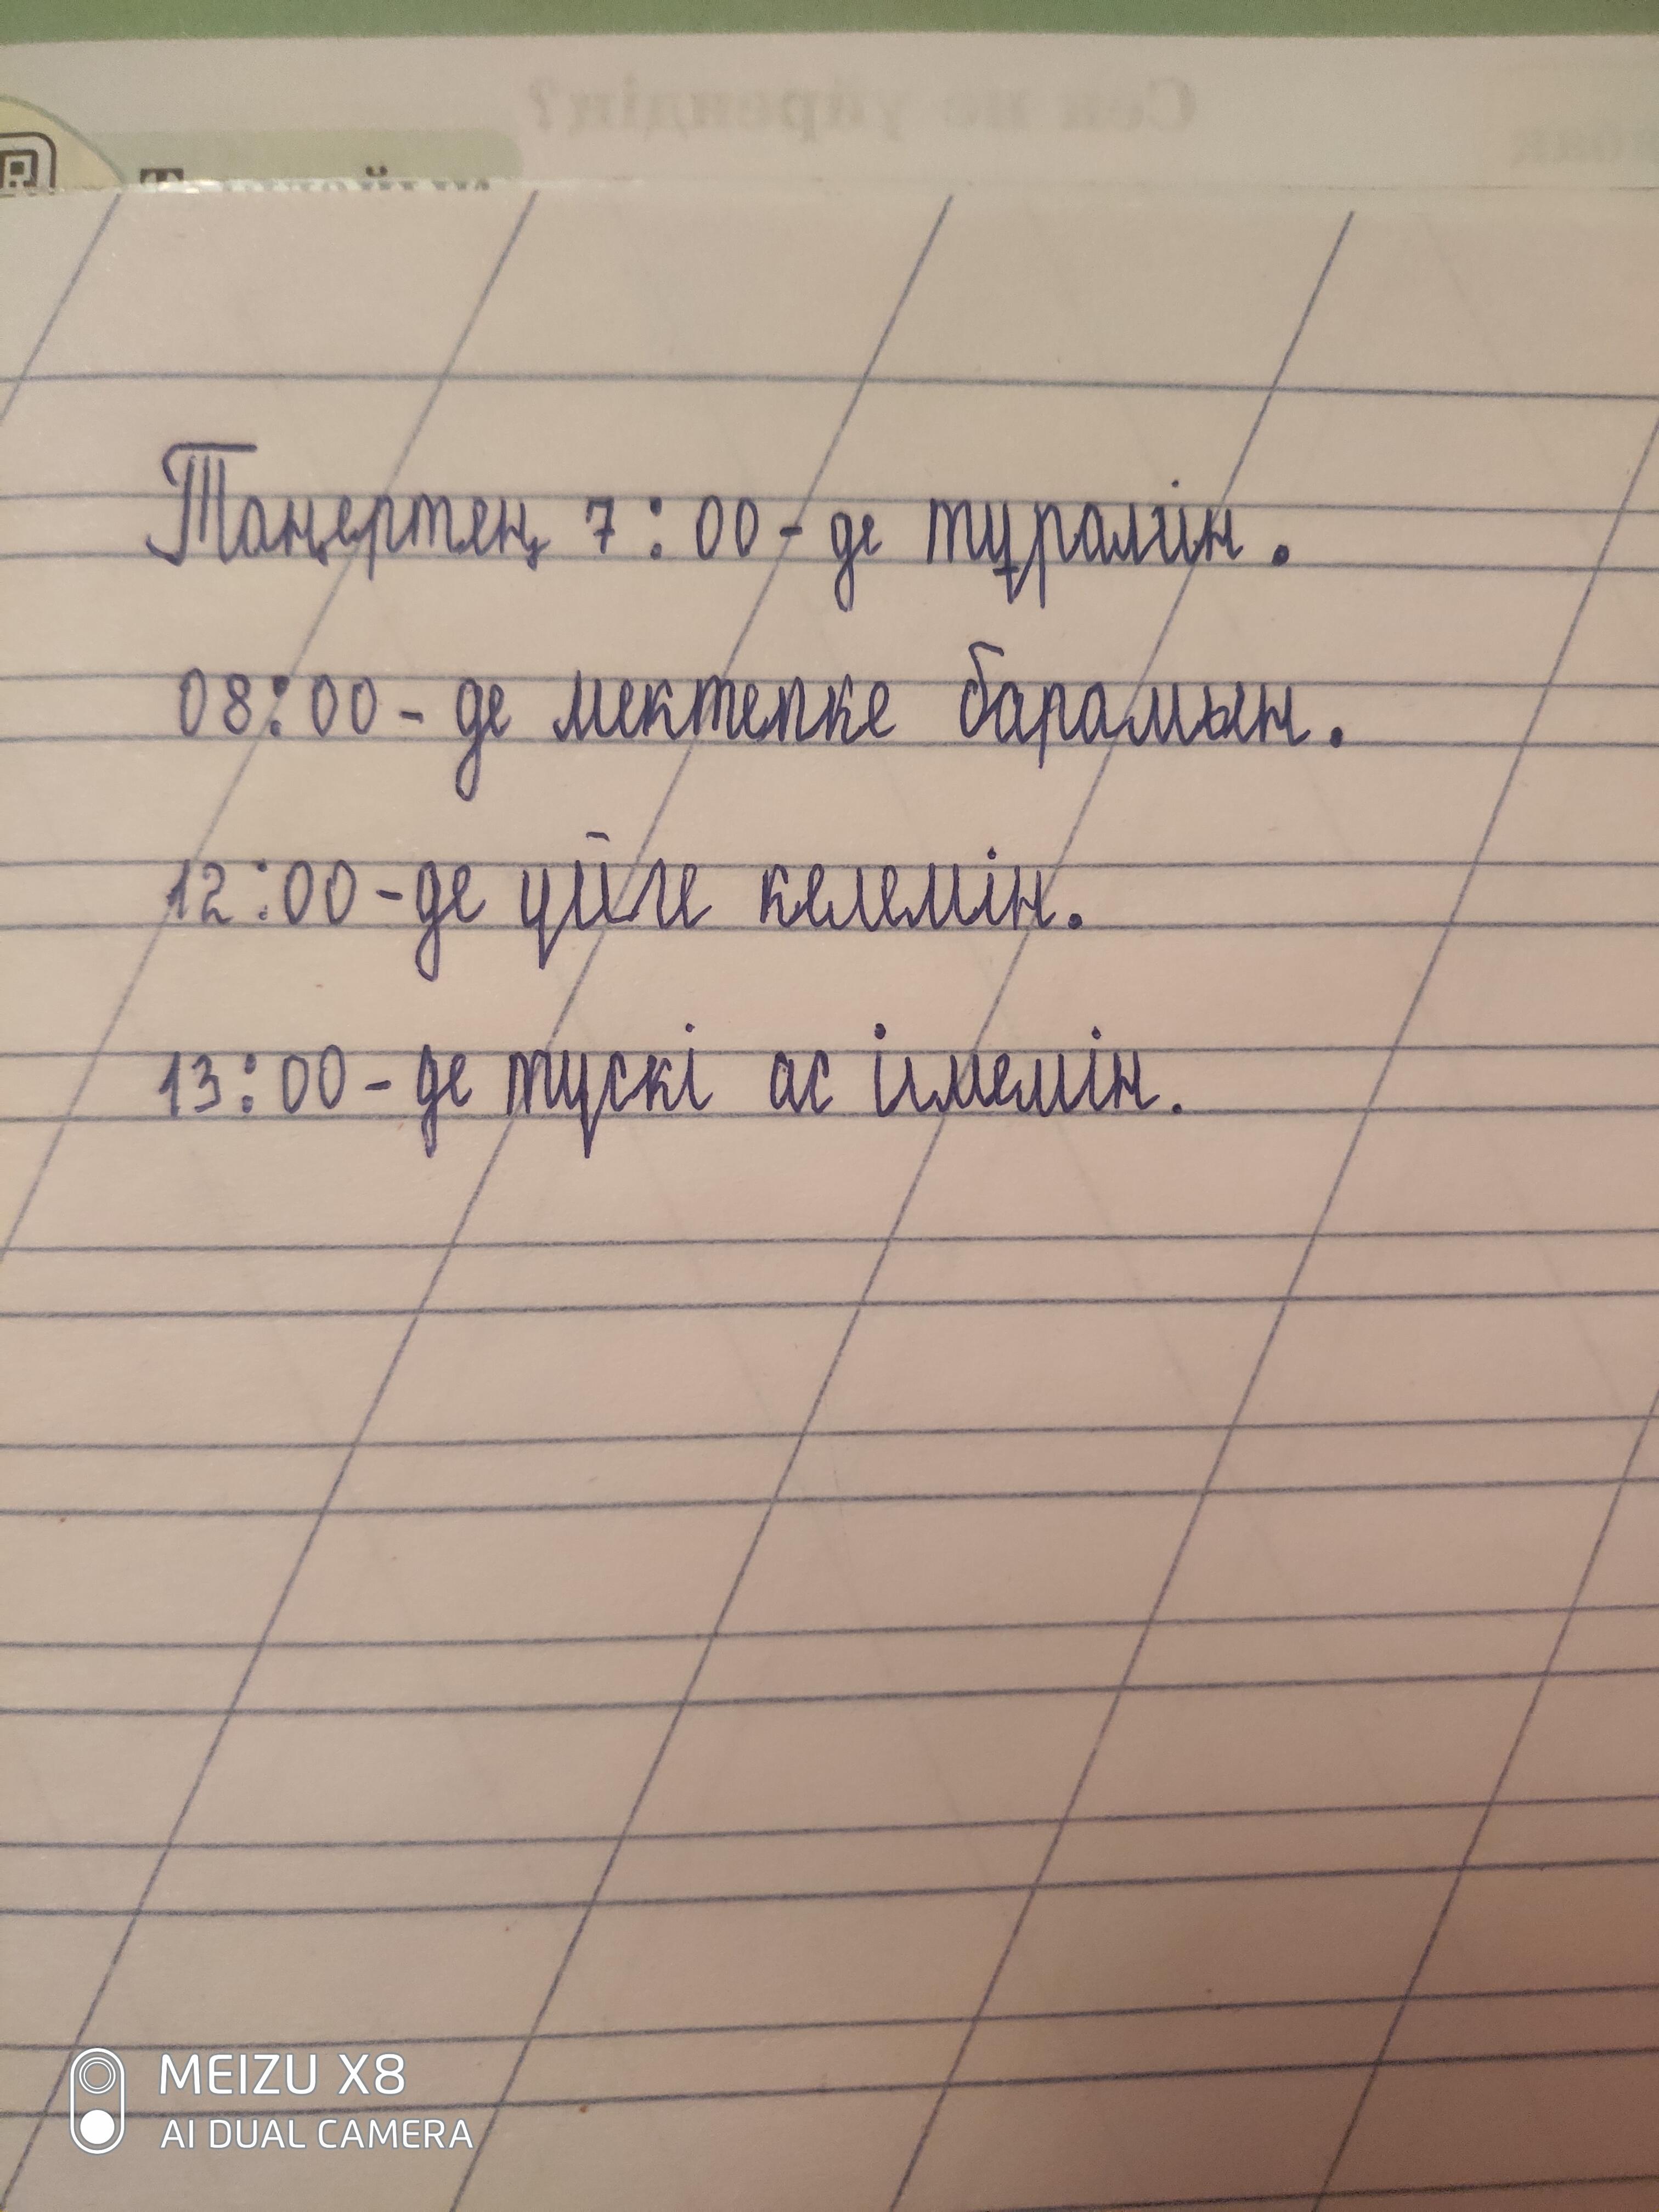 Сен не үйрендің?
Таңертең 7:00-де тұрамін.
08:00-де мектепке барамын.
12:00-де үйге келемін.
13:00-де түскі ас ішемін.
MEIZU X8
AI DUAL CAMERA